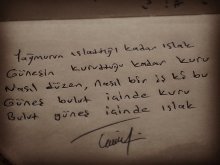 Yağmurun ıslattığı kadar ıslak
Güneşin kuruttuğu kadar kuru
Nasıl düzen, nasıl bir iş ki bu
Güneş bulut içinde kuru
Bulut güneş içinde ıslak